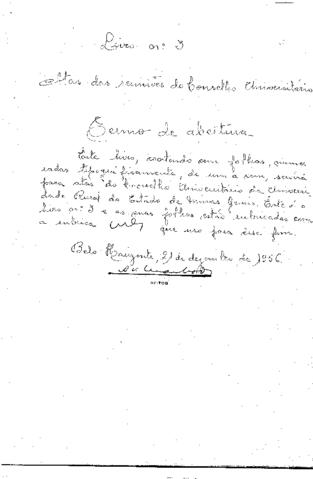 Livro nº 3
Atas das reuniões do Conselho Universitário
Termo de abertura
Este livro, contendo cem folhas, nume-
radas tipograficamente, de um a cem, servirá
para atas do Conselho Universitário da Universi-
dade Rural do Estado de Minas Gerais. Este é o
livro nº 3 e as suas folhas estão rubricadas com
a rubrica que uso para esse fim.
Belo Horizonte, 21 de dezembro de 1956.
REITOR